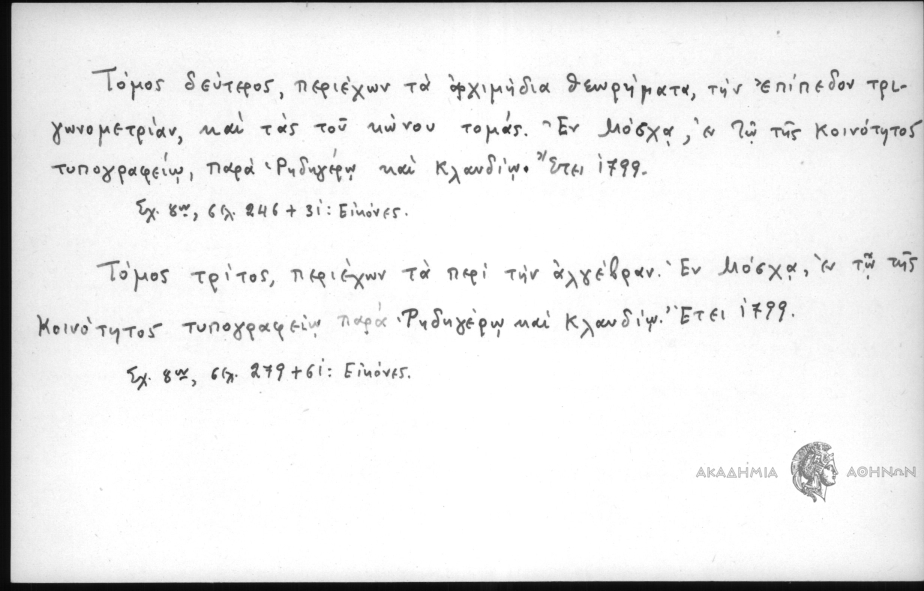 Τόμος δεύτερος, περιέχων τὰ ἀρχιμήδια θεωρήματα, τὴν ἐπίπεδον τρι-
γωνομετρίαν, καὶ τὰς τοῦ κώνου τομάς. Ἐν Μόσχᾳ, ἐν τῷ τῆς Κοινότητος
τυπογραφείῳ, παρὰ Ῥηδηγέρῳ καὶ Κλαυδίῳ. Ἔτει 1799.
Σχ. 8ον, σελ. 246 + 3 i: Εἰκόνες.
Τόμος τρίτος, περιέχων τὰ περὶ τὴν ἀλγέβραν. Ἐν Μόσχᾳ, ἐν τῷ τῆς
Κοινότητος τυπογραφείῳ παρὰ Ῥηδηγέρῳ καὶ Κλαυδίῳ. Ἔτει 1799.
Σχ. 8ον, σελ. 279 + 6 i: Εἰκόνες.
ΑΚΑΔΗΜΙΑ ΑΘΗΝΩΝ